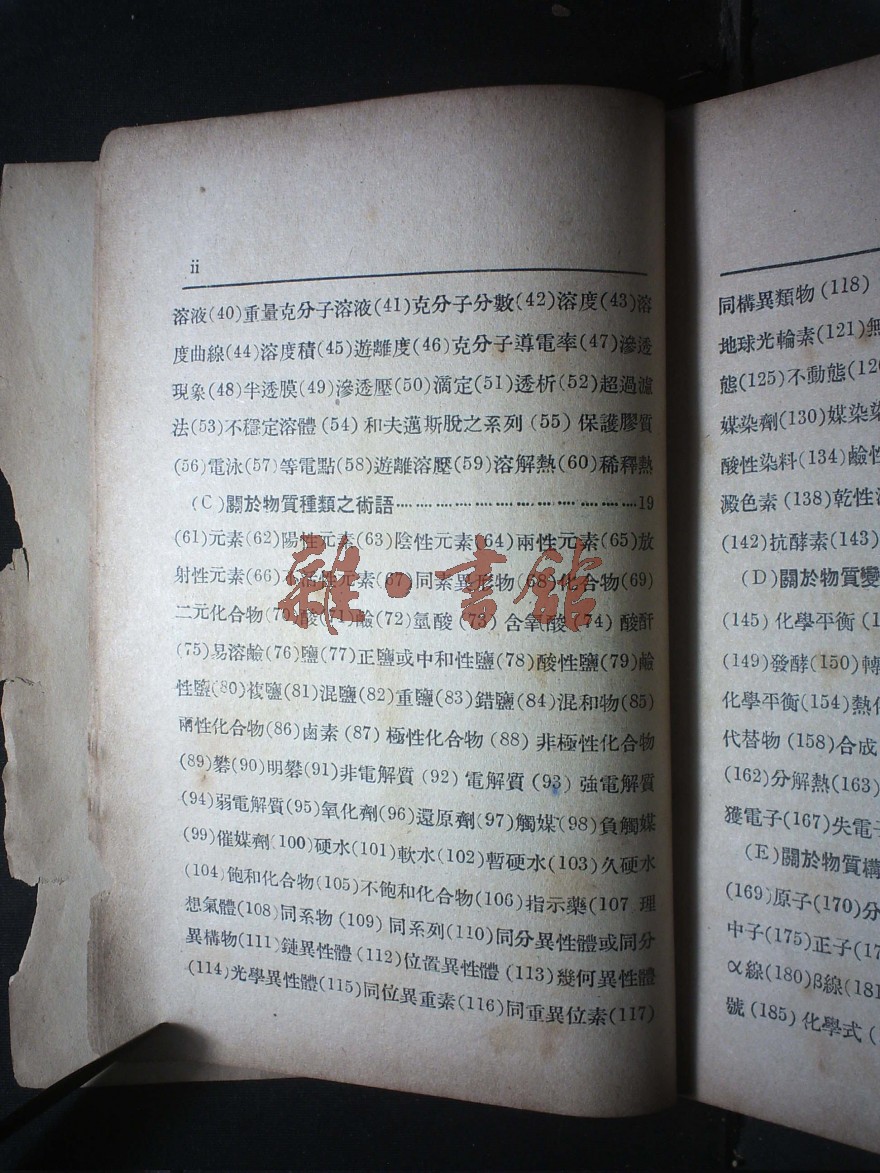 ii
溶液(40)重量克分子溶液(41)克分子分數(42)溶度(43)溶
度曲線(44)溶度積(45)遊離度(46)克分子導電率(47)滲透
現象(48)半透膜(49)滲透壓(50)滴定(51)透析(52)超過濾
法(53)不穩定溶體(54)和夫邁斯脫之系列(55)保護膠質
(56)電泳(57)等電點(58)遊離溶壓(59)溶解熱(60)稀釋熱
(C)關於物質種類之術語……………………………19
(61)元素(62)陽性元素(63)陰性元素(64)兩性元素(65)放
射性元素(66)性元素(67)同素異形物(68)化合物(69)
二元化合物(70)酸(71)鹼(72)氫酸(73)含氧酸(74)酸酐
(75)易溶鹼(76)鹽(77)正鹽或中和性鹽(78)酸性鹽(79)鹼
性鹽(80)複鹽(81)混鹽(82)重鹽(83)錯鹽(84)混和物(85)
兩性化合物(86)鹵素(87)極性化合物(88)非極性化合物
(89)礬(90)明礬(91)非電解質(92)電解質(93)強電解質
(94)弱電解質(95)氧化劑(96)還原劑(97)觸媒(98)負觸媒
(99)催媒劑(100)硬水(101)軟水(102)暫硬水(103)久硬水
(104)飽和化合物(105)不飽和化合物(106)指示藥(107 理
想氣體(108)同系物(109)同系列(110)同分異性體或同分
異構物(111)鏈異性體(112)位置異性體(113)幾何異性體
(114)光學異性體(115)同位異重素(116)同重異位素(117)
雜·書館
同構異類物(118)
地球光輪素(121)無
態(125)不動態(12
媒染劑(130)媒染染
酸性染料(134)鹼性
澱色素(138)乾性
(142)抗酵素(143)
(D)關於物質變
(145)化學平衡(1
(149)發酵(150)轉
化學平衡(154)熱
代替物(158)合成
(162)分解熱(163)
獲電子(167)失電子
(E)關於物質構
(169)原子(170)分
中子(175)正子(17
α線(180)β線(181
號(185)化學式(